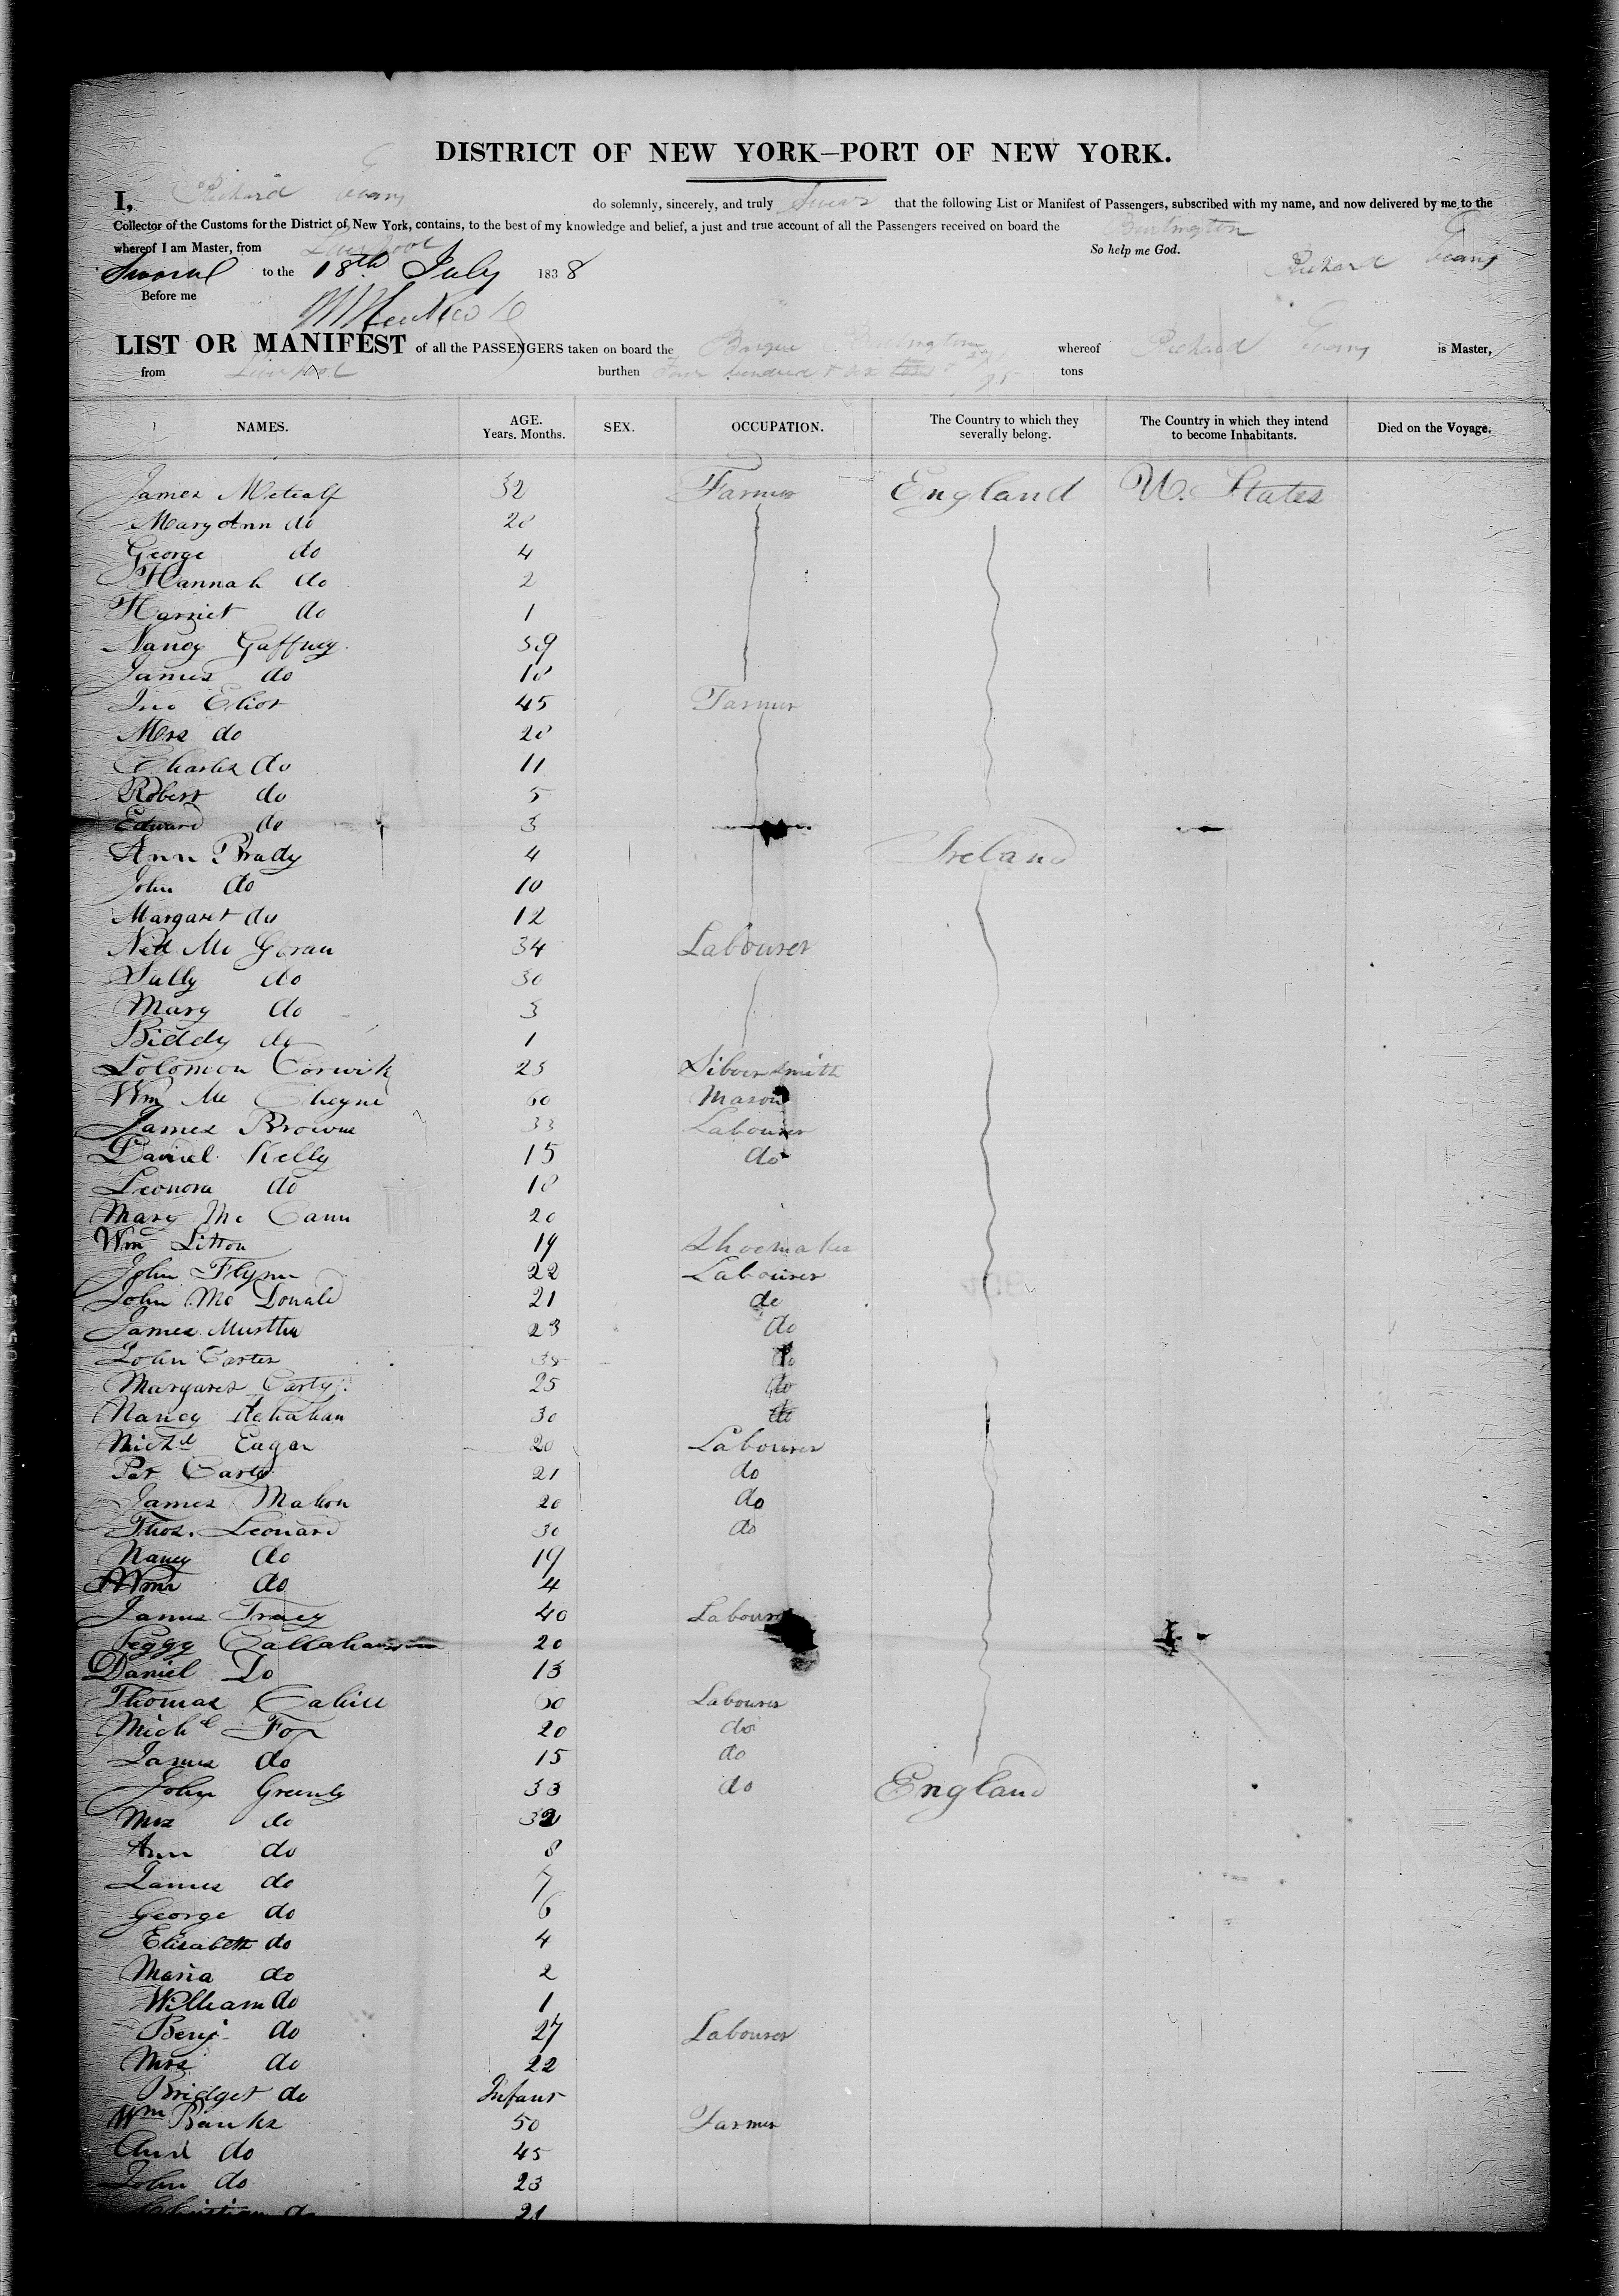 DISTRICT OF NEW YORK—PORT OF NEW YORK.
I, Richard Evans do solemnly, sincerely, and truly Swear that the following List or Manifest of Passengers, subscribed with my name, and now delivered by me to the
Collector of the Customs for the District of New York, contains, to the best of my knowledge and belief, a just and true account of all the Passengers received on board the Burlington
whereof I am Master, from Liverpool So help me God.
Sworn to the 18th July 1838 Richard Evans
Before me
LIST OR MANIFEST of all the PASSENGERS taken on board the Barque Burlington whereof Richard Evans is Master,
from Liverpool burthen Four hundred & six tons /95 tons
NAMES. AGE. Years. Months. SEX. OCCUPATION. The Country to which they severally belong. The Country in which they intend to become Inhabitants. Died on the Voyage.
James Metcalf 32 Farmer England U. States
Mary Ann do 28
George do 4
Hannah do 2
Harriet do 1
Nancy Gaffney 39
James do 18
Jno Eliot 45 Farmer
Mrs do 28
Charles do 11
Robert do 5
Edward do 3
Ann Brady 4 Ireland
John do 10
Margaret do 12
Ned Mc Goran 34 Labourer
Sally do 30
Mary do 3
Biddy do 1
Solomon Corwick 23 Silversmith
Wm Mc Cheyne 60 Mason
James Browne 33 Labourer
Daniel Kelly 15 do
Leonora do 18
Mary Mc Cann 20
Wm Litton 19 Shoemaker
John Flynn 22 Labourer
John Mc Donald 21 do
James Murtha 23 do
John Carter 38 do
Margaret Carty 25 do
Nancy 30 do
Michl Eagan 20 Labourer
Pat Carty 21 do
James Mahon 20 do
Thos. Leonard 30 do
Nancy do 19
Wm do 4
James Tracy 40 Labourer
Peggy Callahan 20
Daniel Do 13
Thomas Cahill 60 Labourer
Michl Fox 20 do
James do 15 do
John Greenly 33 do England
Mrs do 32
Ann do 8
James do 7
George do 6
Elisabeth do 4
Maria do 2
William do 1
Benj. do 27 Labourer
Mrs do 22
Bridget do Infant
Wm Banks 50 Farmer
Ann do 45
John do 23
Christian do 21